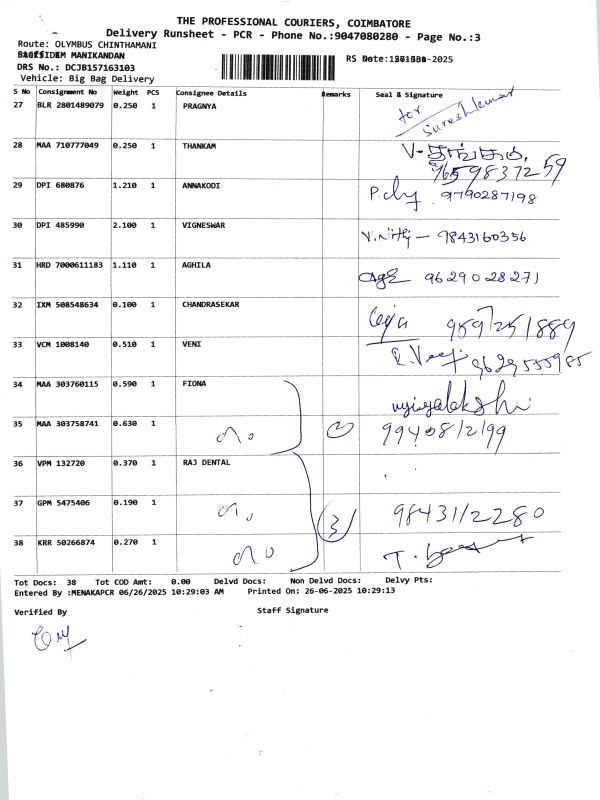 THE PROFESSIONAL COURIERS, COIMBATORE
Delivery Runsheet - PCR - Phone No.:9047080280 - Page No.:3
Route: OLYMBUS CHINTHAMANI
MANIKANDAN
DRS No.: DCJB157163103
Vehicle: Big Bag Delivery
S No Consignment No Weight PCS Consignee Details Remarks Seal & Signature
27 BLR 2801489079 0.250 1 PRAGNYA for Sureshkumar
28 MAA 710777049 0.250 1 THANKAM V-தங்கம். 9659837259
29 DPI 680876 1.210 1 ANNAKODI 9790287198
30 DPI 485990 2.100 1 VIGNESWAR 9843160356
31 HRD 7000611183 1.110 1 AGHILA 9629028271
32 IXM 508548634 0.100 1 CHANDRASEKAR
33 VCM 1008140 0.510 1 VENI 9629555985
34 MAA 303760115 0.590 1 FIONA
35 MAA 303758741 0.630 1 2 9940812199
36 VPM 132720 0.370 1 RAJ DENTAL
37 GPM 5475406 0.190 1 3 9843112280
38 KRR 50266874 0.270 1
Tot Docs: 38 Tot COD Amt: 0.00 Delvd Docs: Non Delvd Docs: Delvy Pts:
Entered By :MENAKAPCR 06/26/2025 10:29:03 AM Printed On: 26-06-2025 10:29:13
Verified By Staff Signature